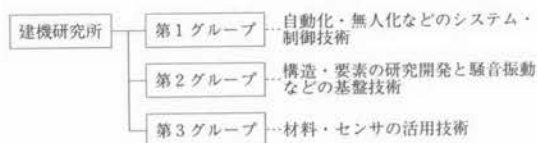 建機研究所
第1グループ
自動化・無人化などのシステム・
制御技術
第2グループ
構造・要素の研究開発と騒音振動
などの基盤技術
第3グループ
材料・センサの活用技術